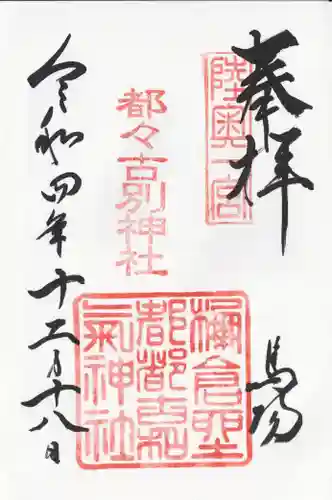 奉拝
陸奥一宮
馬場
都々古別神社
棚倉聖
都都古
氣神社
令和四年十二月十八日